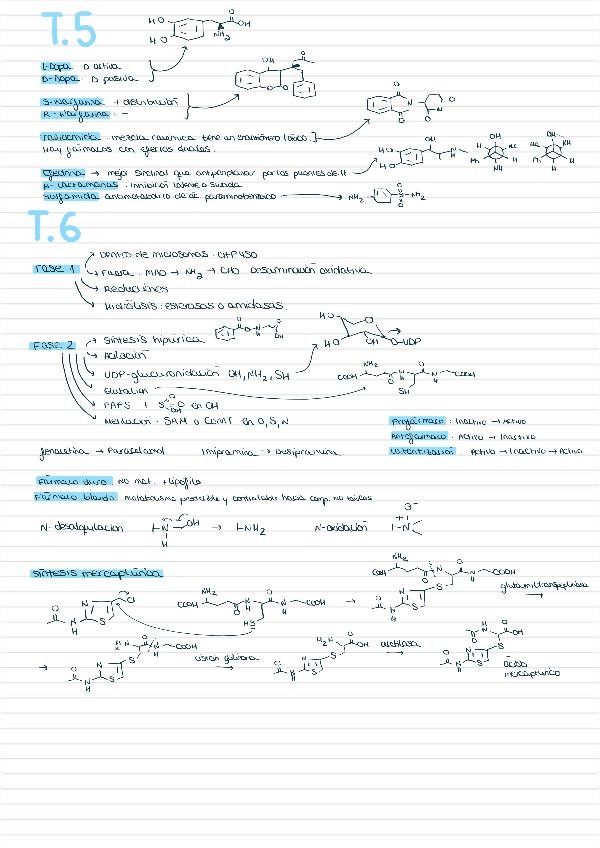 T.5
L-Dopa D activa
D-Dopa D pasiva
S-Warfarina + distribución
R-Warfarina : -
Talidomida · mezcla racémica tiene un enantiómero tóxico.
Hay fármacos con efectos duales.
Efedrina → mejor sinclinal que antiperiplanar por los puentes de H
β-lactamasas · inhibición
Sulfamida antimetabolito de ác. paraminobenzoico
T.6
Fase 1
Dentro de microsomas · CitP450
Fuera · MAO → NH2 → CHO Desaminación oxidativa
Reducciones
Hidrólisis: esterasas o amidasas.
Fase 2
Síntesis hipúrica
Acilación
UDP-glucuronidación OH, NH2, SH
Glutation
PAPS en OH
Metilación · SAM o COMT en O, S, N
Profármaco : Inactivo → Activo
Antefármaco · Activo → Inactivo
Latentización · Activo → Inactivo → Activo
Fenacetina → Paracetamol Imipramina → Desipramina
Fármaco duro No met. + lipófilo
Fármaco blando metabolismo predecible y controlable hacia comp. no tóxicos
N-desalquilación → NH2 N-oxidación
Síntesis mercaptúrica
glutamiltranspeptidasa
→ acetilasa
ácido
mercaptúrico